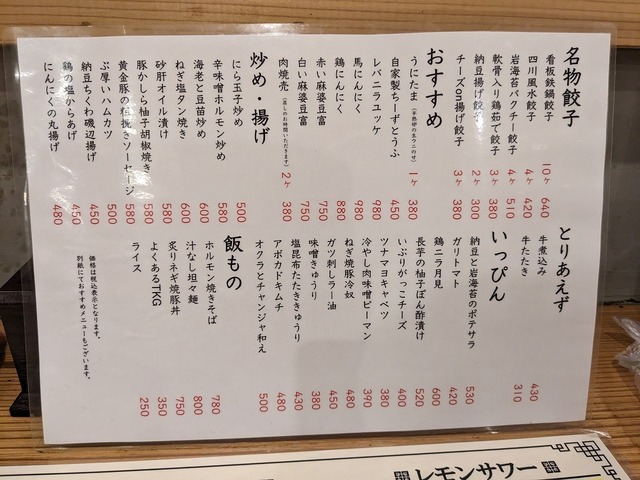 名物餃子
看板鉄鍋餃子 10ヶ 640
四川風水餃子 4ヶ 420
岩海苔パクチー餃子 4ヶ 510
軟骨入り鶏茹で餃子 3ヶ 380
納豆揚げ餃子 2ヶ 300
チーズon揚げ餃子 3ヶ 380
おすすめ
うにたま 1ヶ 380
自家製ちーずとうふ 450
レバニラユッケ 980
馬にんにく 980
鶏にんにく 880
赤い麻婆豆富 750
白い麻婆豆富 750
肉焼売(蒸しのお時間いただきます) 2ヶ 380
炒め・揚げ
にら玉子炒め 500
辛味噌ホルモン炒め 580
海老と豆苗炒め 600
ねぎ塩タン焼き 600
砂肝オイル漬け 580
豚かしら柚子胡椒焼き 580
黄金豚の粗挽きソーセージ 580
ぶ厚いハムカツ 500
納豆ちくわ磯辺揚げ 450
鶏の塩からあげ 450
にんにくの丸揚げ 480
とりあえず
牛煮込み 430
牛たたき 310
いっぴん
納豆と岩海苔のポテサラ 530
ガリトマト 420
鶏ニラ月見 600
長芋の柚子ぽん酢漬け 520
いぶりがっこチーズ 400
ツナマヨキャベツ 380
冷やし肉味噌ピーマン 390
ねぎ焼豚冷奴 480
ガツ刺しラー油 450
味噌きゅうり 380
塩昆布たたききゅうり 430
アボカドキムチ 480
オクラとチャンジャ和え 500
飯もの
ホルモン焼きそば 780
汁なし坦々麺 800
炙りネギ焼豚丼 750
よくあるTKG 350
ライス 250
価格は税込表示となります。
別紙にておすすめメニューもございます。
レモンサワー